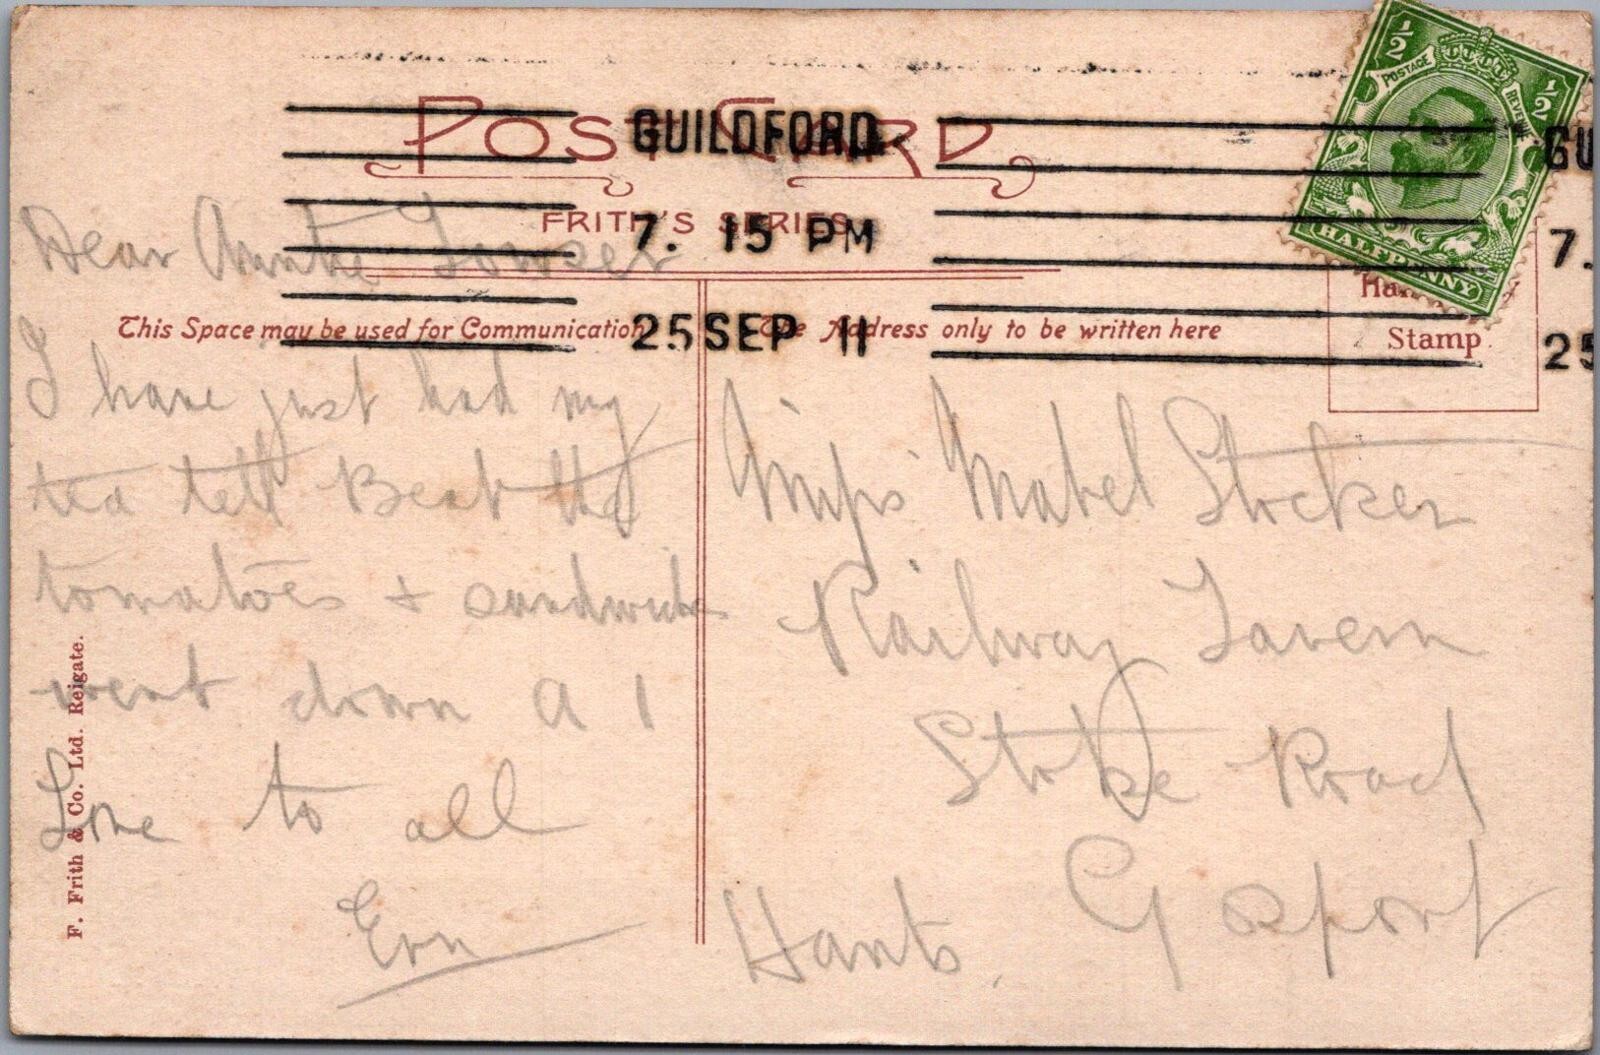 POST CARD
FRITH'S SERIES
GUILDFORD
7. 15 PM
25 SEP 11
GU
7.
25
1/2 POSTAGE REVENUE 1/2
HALFPENNY
Stamp
This Space may be used for Communication
The Address only to be written here
Dear Auntie
I have just had my
tea tell Beat the
tomatoes + sandwichs
went down A 1
Love to all
Ern
Miss Mabel Stocker
Railway Tavern
Stoke Road
Gosport
Hants.
F. Frith & Co. Ltd. Reigate.